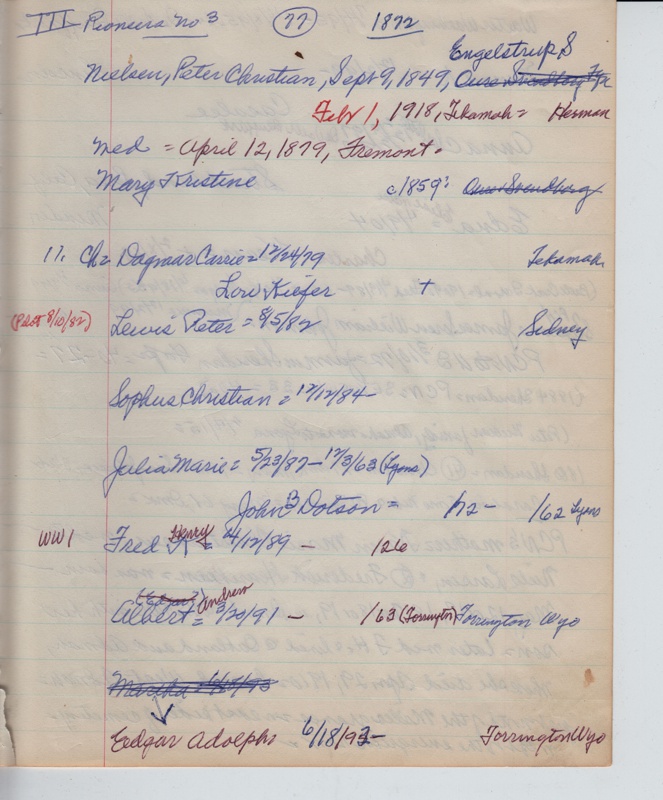 III Pioneers No 3 (77) 1872
Engelstrup S
Nielsen, Peter Christian, Sept 9, 1849,
Feb 1, 1918, Tekamah = Herman
Med = April 12, 1879, Fremont.
Mary Kristine c1859: Oure Svendborg
11. Ch = Dagmar Carrie = 12/24/79 Tekamah
Low Kiefer +
(Post 8/10/82) Lewis Peter = 8/5/82 Sidney
Sophus Christian = 12/12/84-
Julia Marie = 5/23/87 - 12/3/63 (Lyons)
John B Dotson = /72 - /62 Lyons
WW1 Fred Henry = 4/12/89 - /26
Albert Andrew = 3/20/91 - /63 (Torrington) Torrington Wyo
Martha
Edgar Adolph 6/18/93- Torrington Wyo